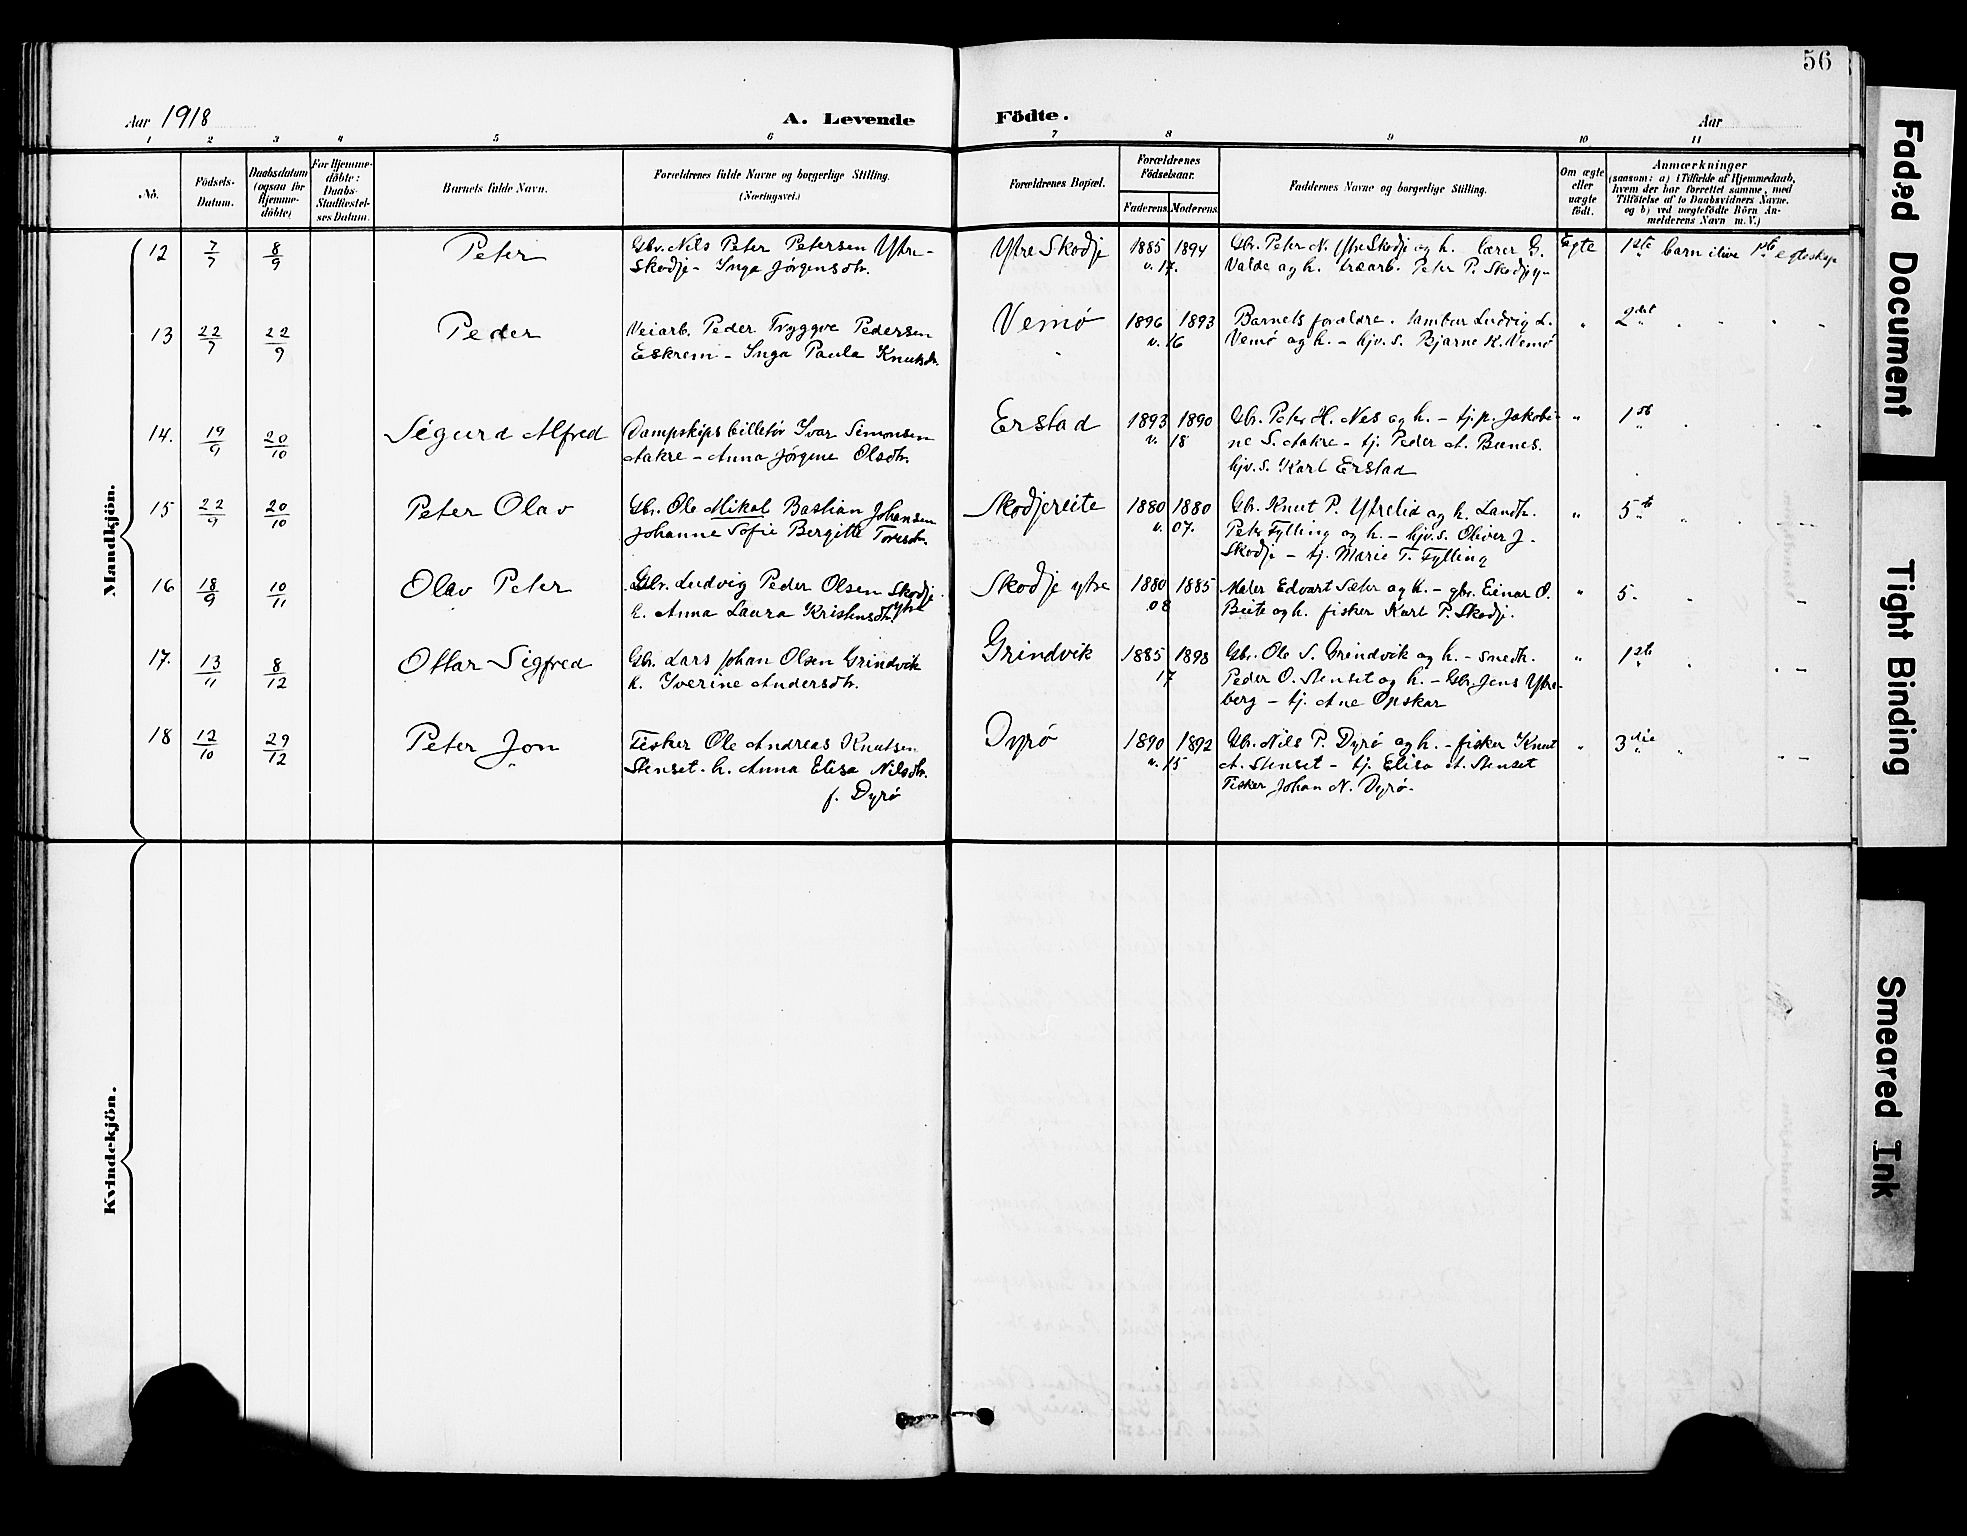 56
Aar 1918
A. Levende Födte.
Aar
1 2 3 4 5 6 7 8 9 10 11
No.
Födsels-Datum.
Daabsdatum (ogsaa for Hjemme-döbte)
For Hjemme-döbte: Daabs-Stadfæstel-ses Datum.
Barnets fulde Navn.
Forældrenes fulde Navne og borgerlige Stilling. (Næringsvei.)
Forældrenes Bopæl.
Forældrenes Födselsaar.
Faderens. Moderens.
Faddernes Navne og borgerlige Stilling.
Om ægte eller uægte födt.
Anmærkninger
(saasom: a) i Tilfælde af Hjemmedaab, hvem der har forrettet samme, med Tilföielse af to Daabsvidners Navne, og b) ved uægtefödte Börn An-melderens Navn m. V.)
Mandkjön.
12 7/7 8/9 Peter
Gbr. Nils Peter Petersen Ytre-
Skodje - Inga Jørgensdtr.
Ytre Skodje 1885 1894
v. 17.
Gbr. Peter N. Ytre Skodje og h. lærer G.
Valde og h. træarb. Peter P. Skodjey-
Egte 1ste barn i live 1ste egteskap
13 22/7 22/9 Peder
Veiarb. Peder Tryggve Pedersen
Eskrem - Inga Paula Knutsdtr.
Vemø 1896 1893
v. 16
Barnets forældre. Ludvig L.
Vemø og h. - hjv. s. Bjarne K. Vemø
" 2det " " " "
14. 19/9 20/10 Sigurd Alfred
Dampskipsbilletør Ivar Simonsen
Aakre - Anna Jørgine Olsdtr.
Erstad 1893 1890
v. 18
Gbr. Peter H. Nes og h. - tj.p. Jakobi-
ne S. Aakre - tj. Peder A. Bænes.
hjv. s. Karl Erstad
" 1st " "
15 22/9 20/10 Peter Olav
Gbr. Ole Mikal Bastian Johansen
Johanne Sofie Bergitte Toresdtr.
Skodjereite 1880 1880
v. 07.
Gbr. Knut P. Ytrelid og h. Landh.
Peter Fylling og h. - hjv. s. Oliver J.
Skodje - tj. Marie T. Fylling
" 5te " "
16 18/9 10/11 Olav Peter
Gbr. Ludvig Peder Olsen Skodje
ytre
h. Anna Laura Kristensdtr.
Skodje ytre 1880 1885
08
Maler Edvart Sæter og h. - gbr. Einar O.
Beite og h. fisker Karl P. Skodje.
" 5. "
17. 13/11 8/12 Ottar Sigfred
Gbr. Lars Johan Olsen Grindvik
h. Iverine Andersdtr.
Grindvik 1885 1898
17
Gbr. Ole S. Grindvik og h. - snedk.
Peder O. Stenset og h. - Gbr. Jens Ytre-
berg - tj. Ane Opskar
" 1ste "
18 12/10 29/12 Peter Jon
Fisker Ole Andreas Knutsen
Stenset. h. Anna Elisa Nilsdtr.
f. Dyrø
Dyrø 1890 1892
v. 15
Gbr. Nils P. Dyrø og h. - fisker Knut
A. Stenset - tj. Elisa A. Stenset
Fisker Johan N. Dyrø.
" 3die "
Kvindekjön.
Faded Document
Tight Binding
Smeared Ink